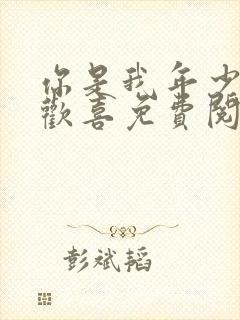 你是我年少
歡喜免費閱
彭斌韬